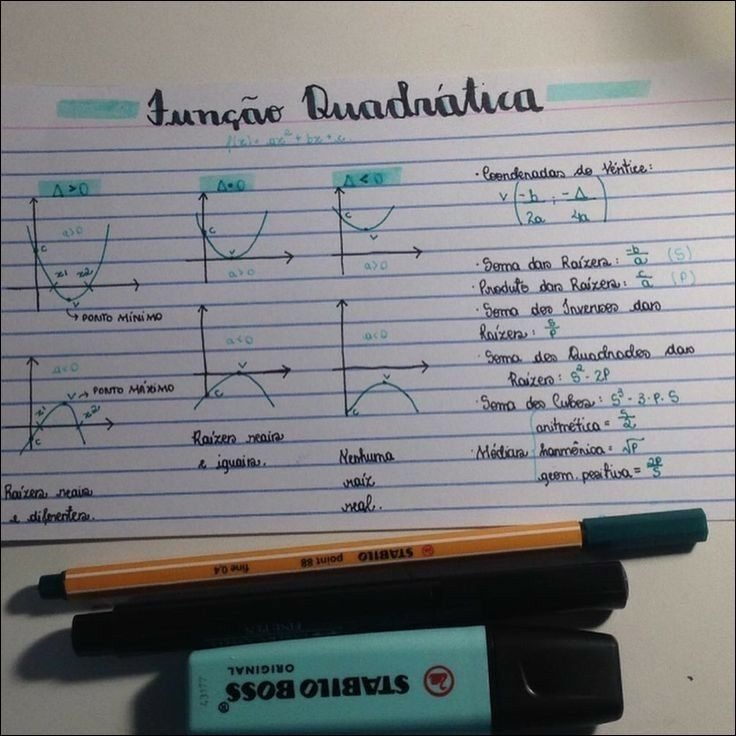 Função Quadrática
f(x) = ax² + bx + c
Δ > 0
a>0
x1
x2
c
v
→ PONTO MÍNIMO
a<0
v → PONTO MÁXIMO
x1
x2
c
Raízes reais
e diferentes.
Δ = 0
c
v
a>0
a<0
v
c
Raízes reais
e iguais.
Δ < 0
c
v
a>0
a<0
v
c
Nenhuma
raiz
real.
· Coordenadas do Vértice:
V (-b/2a ; -Δ/4a)
· Soma das Raízes: -b/a (S)
· Produto das Raízes: c/a (P)
· Soma dos Inversos das
Raízes: S/P
· Soma dos Quadrados das
Raízes: S² - 2P
· Soma dos Cubos: S³ - 3·P·S
aritmética = S/2
· Médias harmônica = √P
geom. positiva = 2P/S
STABILO point 88 fine 0.4
FINE PEN
STABILO BOSS
ORIGINAL